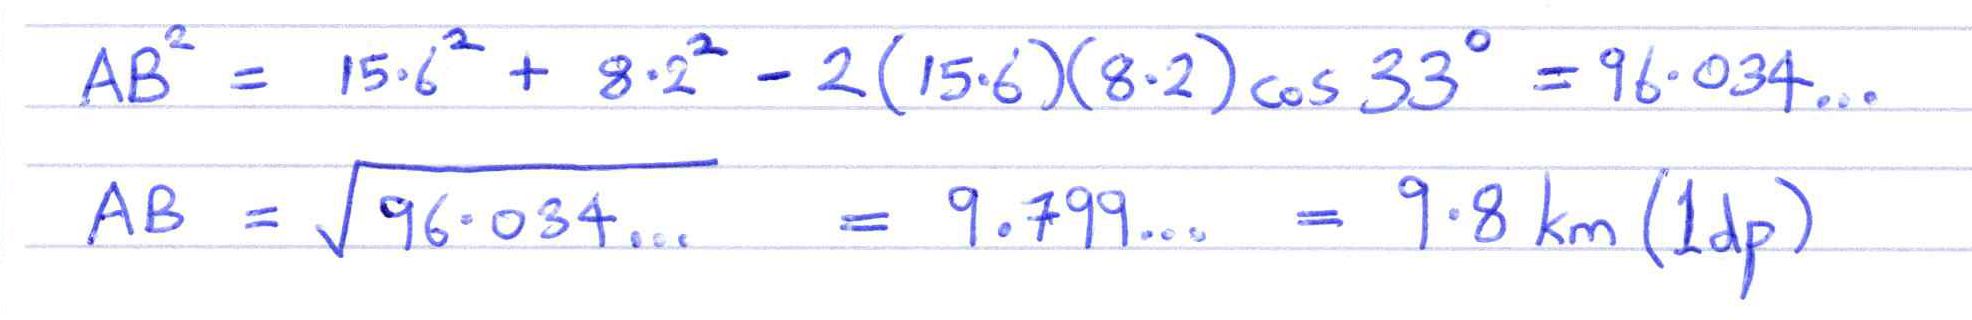 AB² = 15·6² + 8·2² - 2(15·6)(8·2) cos 33° = 96·034...
AB = √96·034... = 9.799... = 9·8 km (1dp)